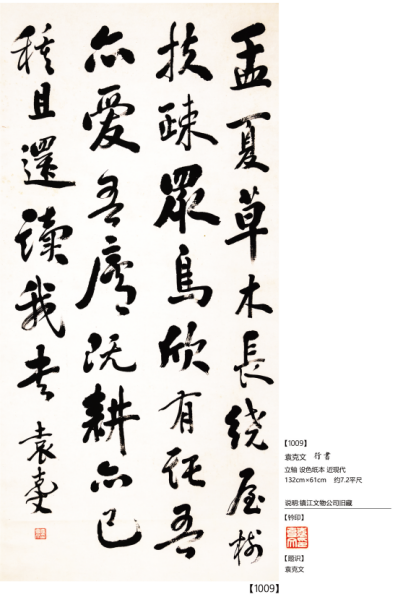 孟夏草木長繞屋樹
扶疎眾鳥欣有託吾
亦愛吾廬既耕亦已
種且還讀我書
袁克文
【1009】
袁克文 行書
立轴 设色纸本 近现代
132cm×61cm 约7.2平尺
说明:镇江文物公司旧藏
【钤印】
【题识】
袁克文
【1009】